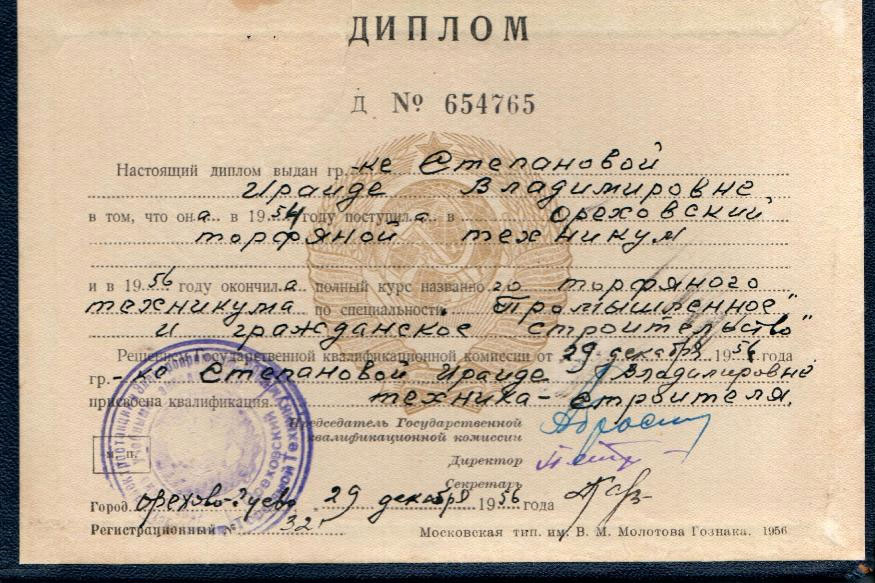 ДИПЛОМ
Д № 654765
Настоящий диплом выдан гр.-ке Степановой
Ираиде Владимировне
в том, что она в 1954 году поступила в Ореховский
торфяной техникум
и в 1956 году окончила полный курс названного торфяного
техникума по специальности "Промышленное
и гражданское строительство"
Решением Государственной квалификационной комиссии от 29 декабря 1956 года
гр.-ке Степановой Ираиде Владимировне
присвоена квалификация техника-строителя.
Председатель Государственной
квалификационной комиссии
Директор
Секретарь
М. П.
Город Орехово-Зуево 29 декабря 1956 года
Регистрационный № 32
Московская тип. им. В. М. Молотова Гознака. 1956